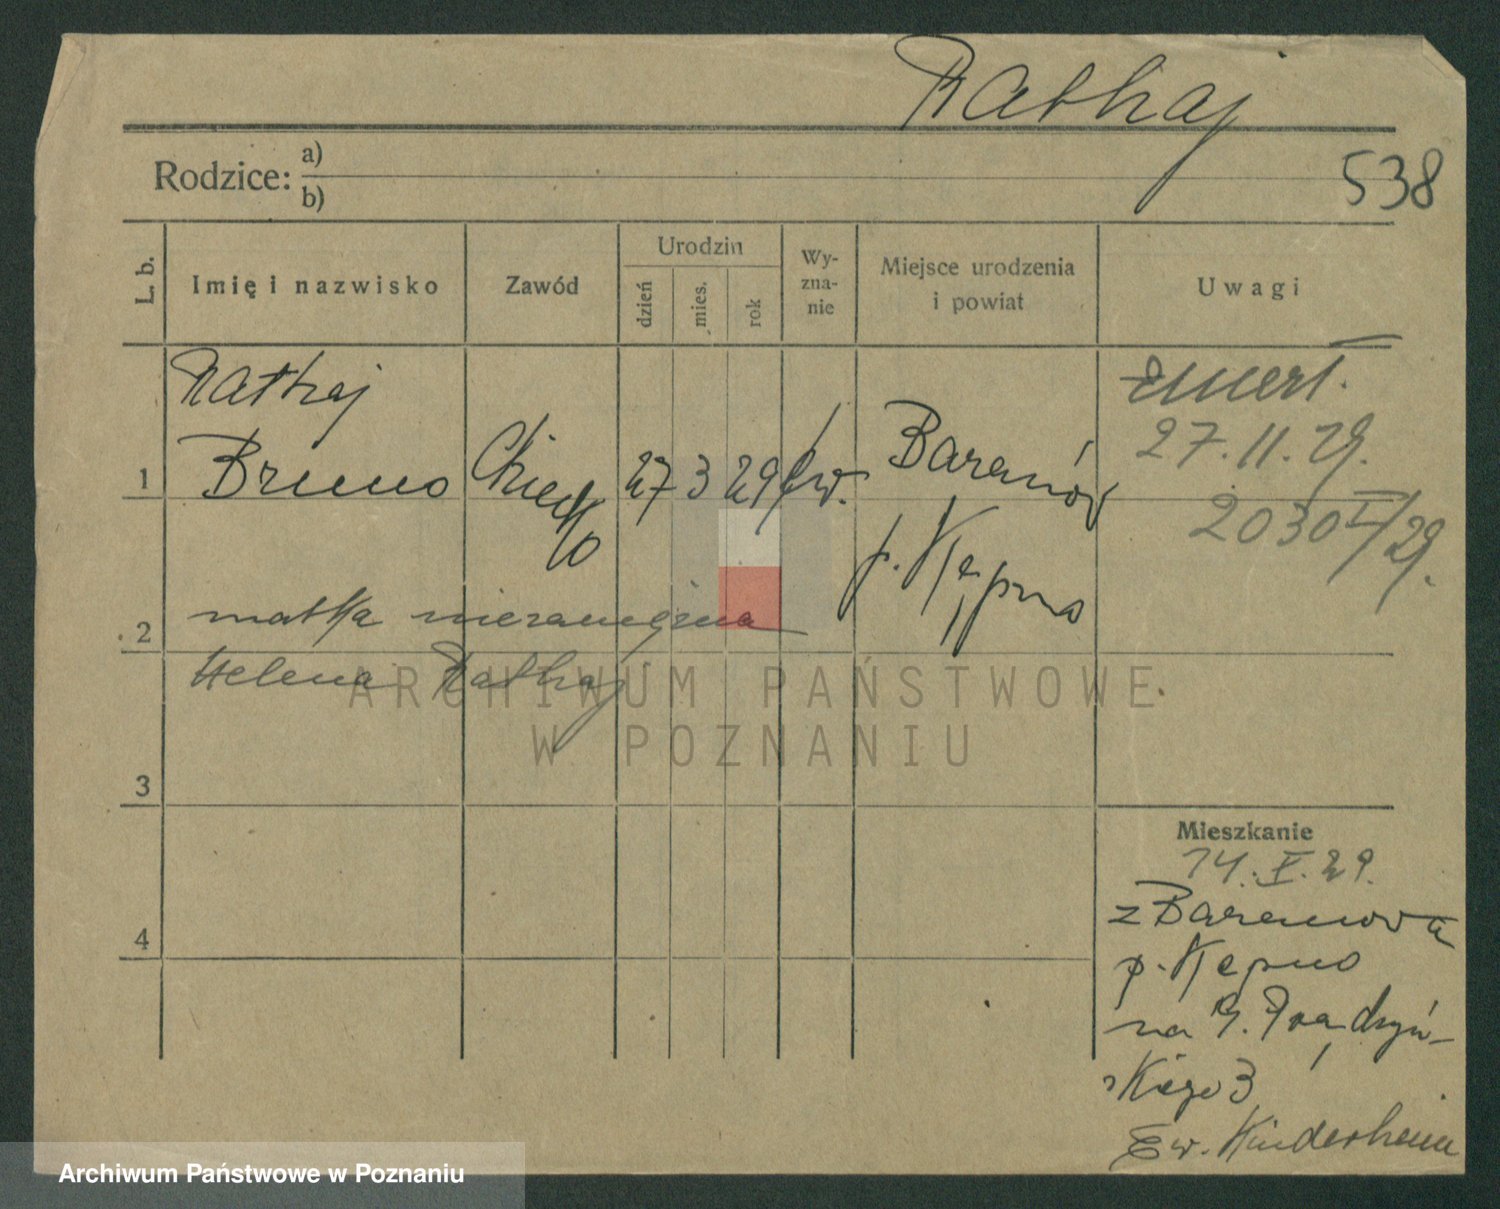 Rathaj
538
Rodzice: a)
b)
L. b.
Imię i nazwisko
Zawód
Urodzin
dzień
mies.
rok
Wy-
zna-
nie
Miejsce urodzenia
i powiat
Uwagi
1
Rathaj
Bruno
Dziecko
27 3 29 ew.
Baranów
p. Kępno
Emert.
27.11.29.
2030 I/29.
2
matka niezamężna
Helena Rathaj
3
4
Mieszkanie
14.V.29.
z Baranowa
p. Kępno
na G. Prądzyń-
skiego 3
Ew. Kinderheim
ARCHIWUM PAŃSTWOWE
W POZNANIU
Archiwum Państwowe w Poznaniu